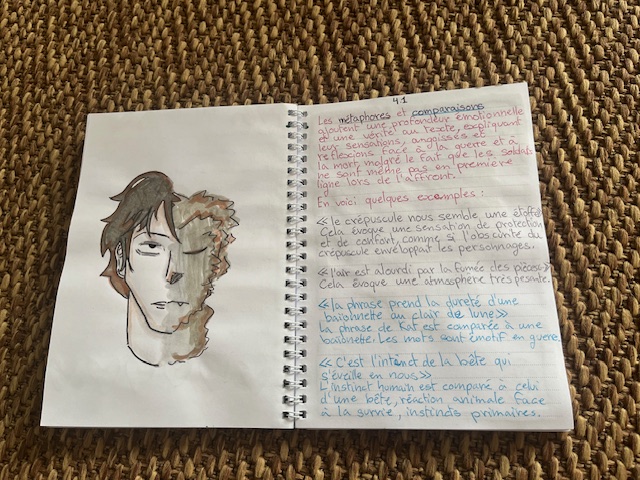 4.1
Les métaphores et comparaisons
ajoutent une profondeur émotionnelle
et une vérité au texte, expliquant
leur sensations, angoisses et
réflexions face à la guerre et à
la mort, malgré le fait que les soldats
ne sont même pas en première
ligne lors de l'affront.
En voici quelques exemples :
« le crépuscule nous semble une étoffe»
Cela évoque une sensation de protection
et de confort, comme si l'obscurité du
crépuscule enveloppait les personnages.
« l'air est alourdi par la fumée des pièces»
Cela évoque une atmosphère très pesante.
« la phrase prend la dureté d'une
baïonnette au clair de lune»
La phrase de Kat est comparée à une
baïonette. Les mots sont émotif en guerre.
« C'est l'intinct de la bête qui
s'éveille en nous»
L'instinct humain est comparé à celui
d'une bête, réaction animale face
à la survie, instincts primaires.